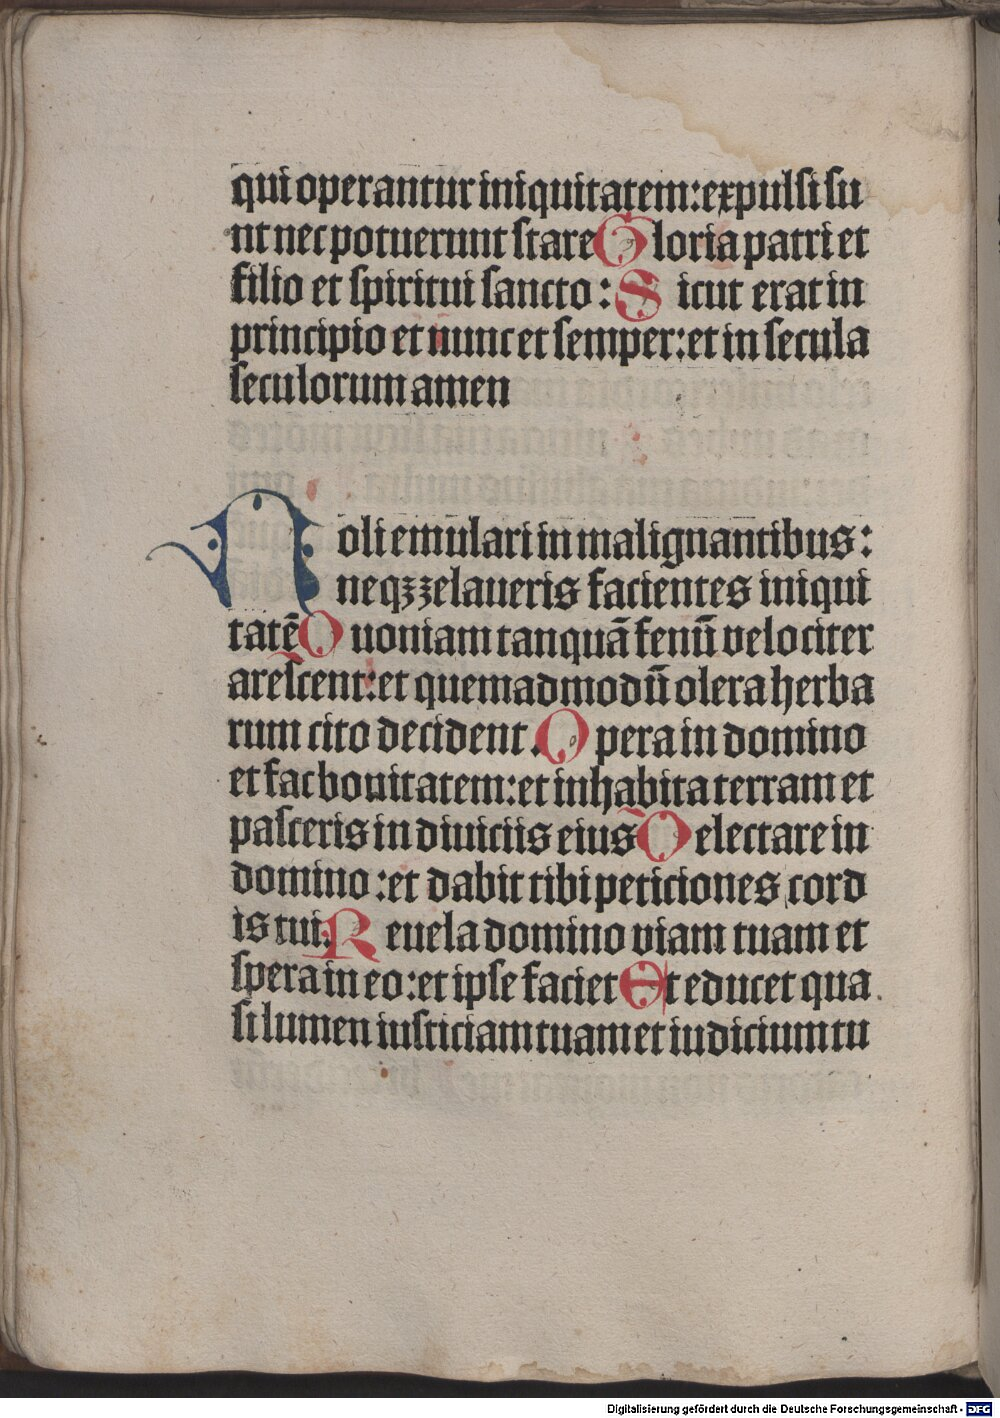 qui operantur iniquitatem: expulsi su
nt nec potuerunt stare Gloria patri et
filio et spiritui sancto: Sicut erat in
principio et nunc et semper: et in secula
seculorum amen
Noli emulari in malignantibus:
neqʒ zelaueris facientes iniqui
tatē Quoniam tanquā fenū velociter
arescent: et quemadmodū olera herba
rum cito decident. Opera in domino
et fac bonitatem: et inhabita terram et
pasceris in diuiciis eius Delectare in
domino: et dabit tibi peticiones cord
is tui. Reuela domino viam tuam et
spera in eo: et ipse faciet Et educet qua
si lumen iusticiam tuam et iudicium tu
Digitalisierung gefördert durch die Deutsche Forschungsgemeinschaft - DFG